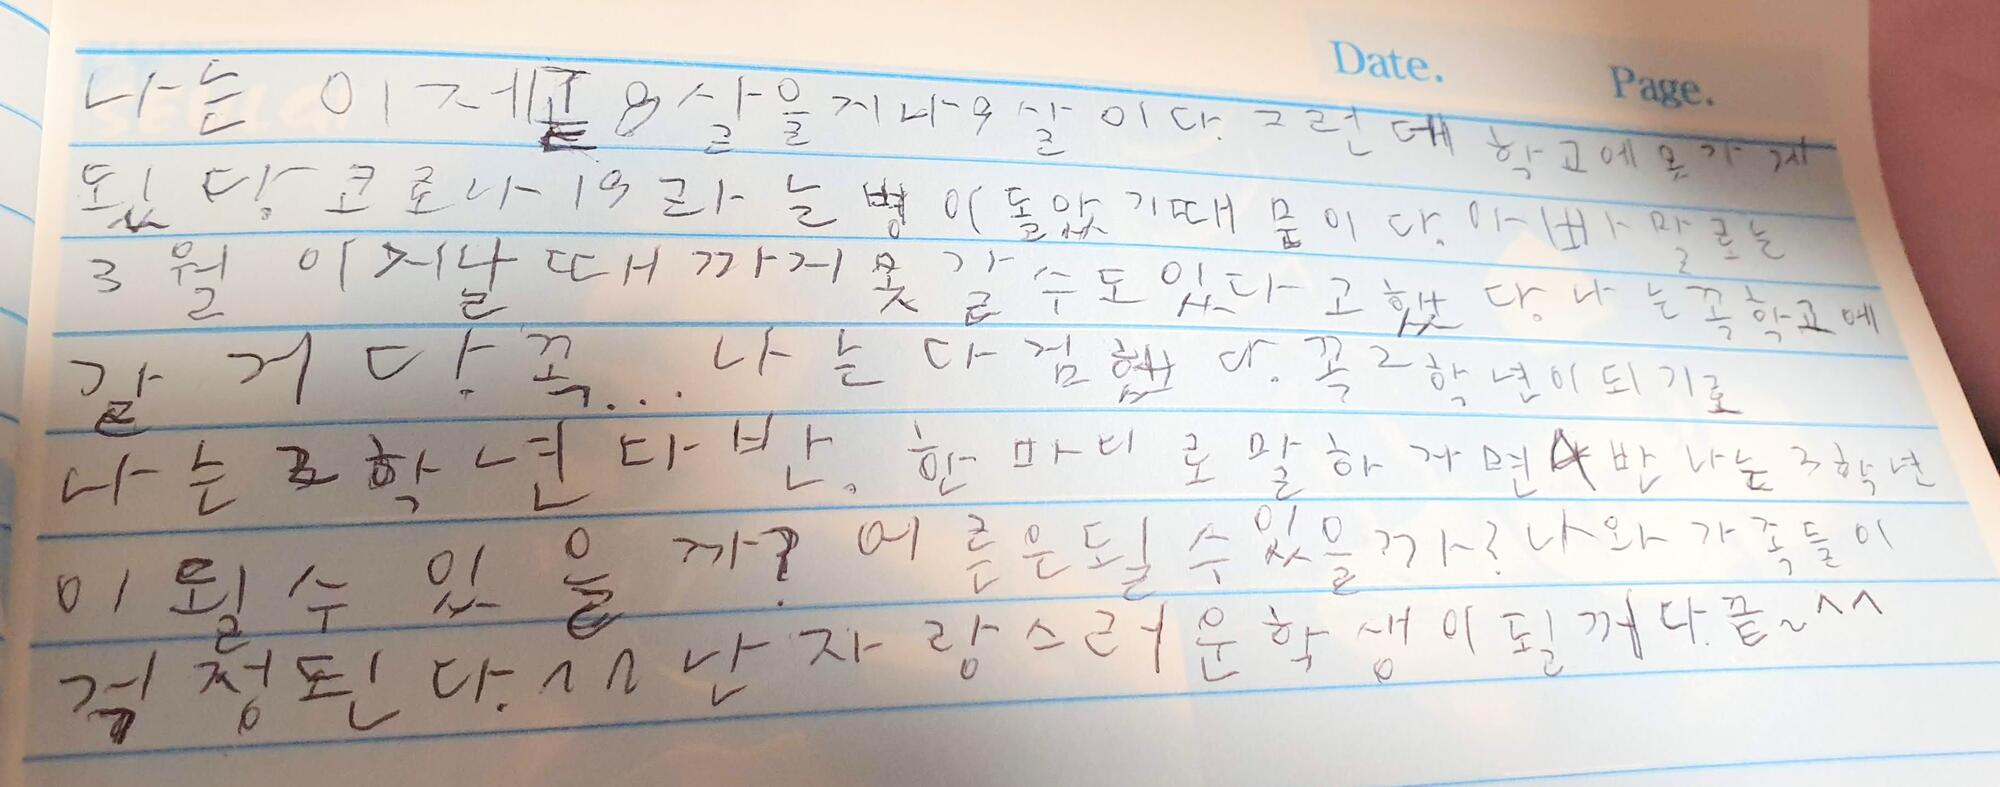 Date. Page.
나는 이제 8살을 지나 9살이다. 그런데 학교에 못가게
됬당. 코로나19라는 병이 돌았기 때문이다. 아빠 말로는
3월이 지날때까지 못갈수도 있다고 했당. 나는 꼭 학교에
갈거당. 꼭... 나는 다짐했다. 꼭 2학년이 되기로
나는 2학년 다반. 한마디로 말하자면 4반 나는 3학년
이 될수 있을까? 어른은 될 수 있을까? 나와 가족들이
걱정된다. ㄱㄱ 난 자랑스러운 학생이 될꺼다. 끝~^^